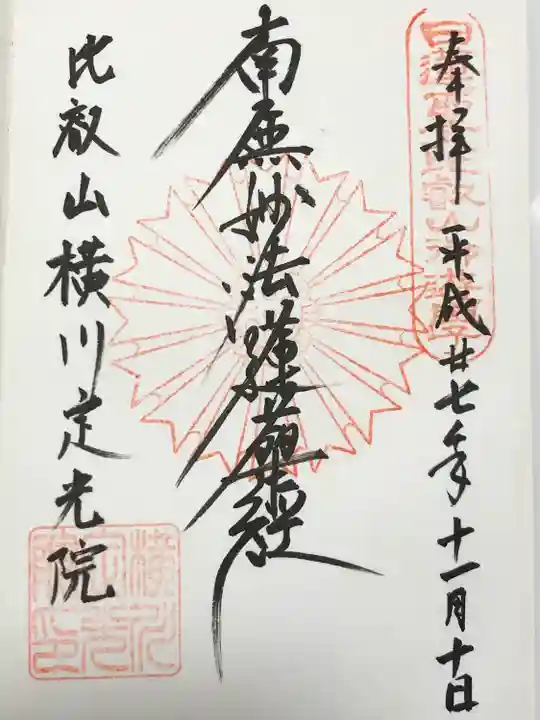 奉拝 平成廿七年十一月十日
南無妙法蓮華経
比叡山横川定光院